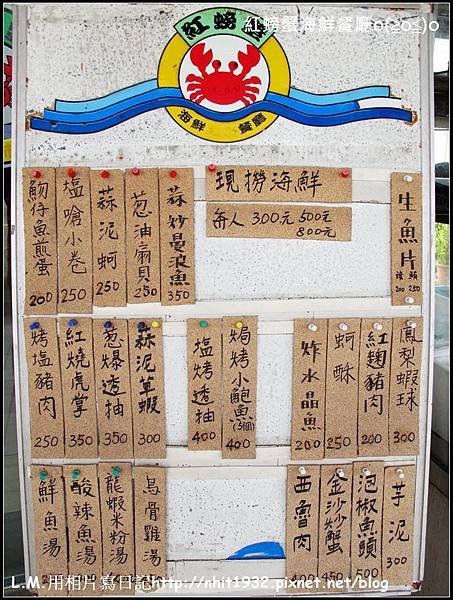 紅螃蟹海鮮餐廳o(≧o≦)o
紅螃蟹
海鮮 餐廳
現撈海鮮
每人 300元 500元
800元
魩仔魚煎蛋
200
塩嗆小卷
250
蒜泥蚵
250
葱油扇貝
250
蒜炒曼波魚
350
生魚片
200 250
烤塩豬肉
250
紅燒虎掌
350
葱爆透抽
350
蒜泥草蝦
300
塩烤透抽
400
焗烤小鮑魚
(3個)
400
炸水晶魚
200
蚵酥
250
紅麴豬肉
200
鳳梨蝦球
300
鮮魚湯
酸辣魚湯
龍蝦米粉湯
烏骨雞湯
西魯肉
金沙炒蟹
泡椒魚頭
芋泥
300
L.M.用相片寫日記http://nhit1932.pixnet.net/blog